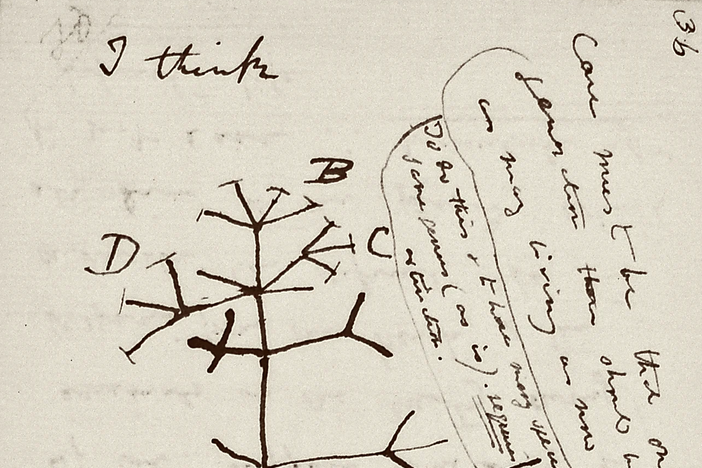 36
I think
Case must be that on
generation then should b
as many living as now
To do this & to have many spec
same genus (as is). requires
extinction.
B
C
D